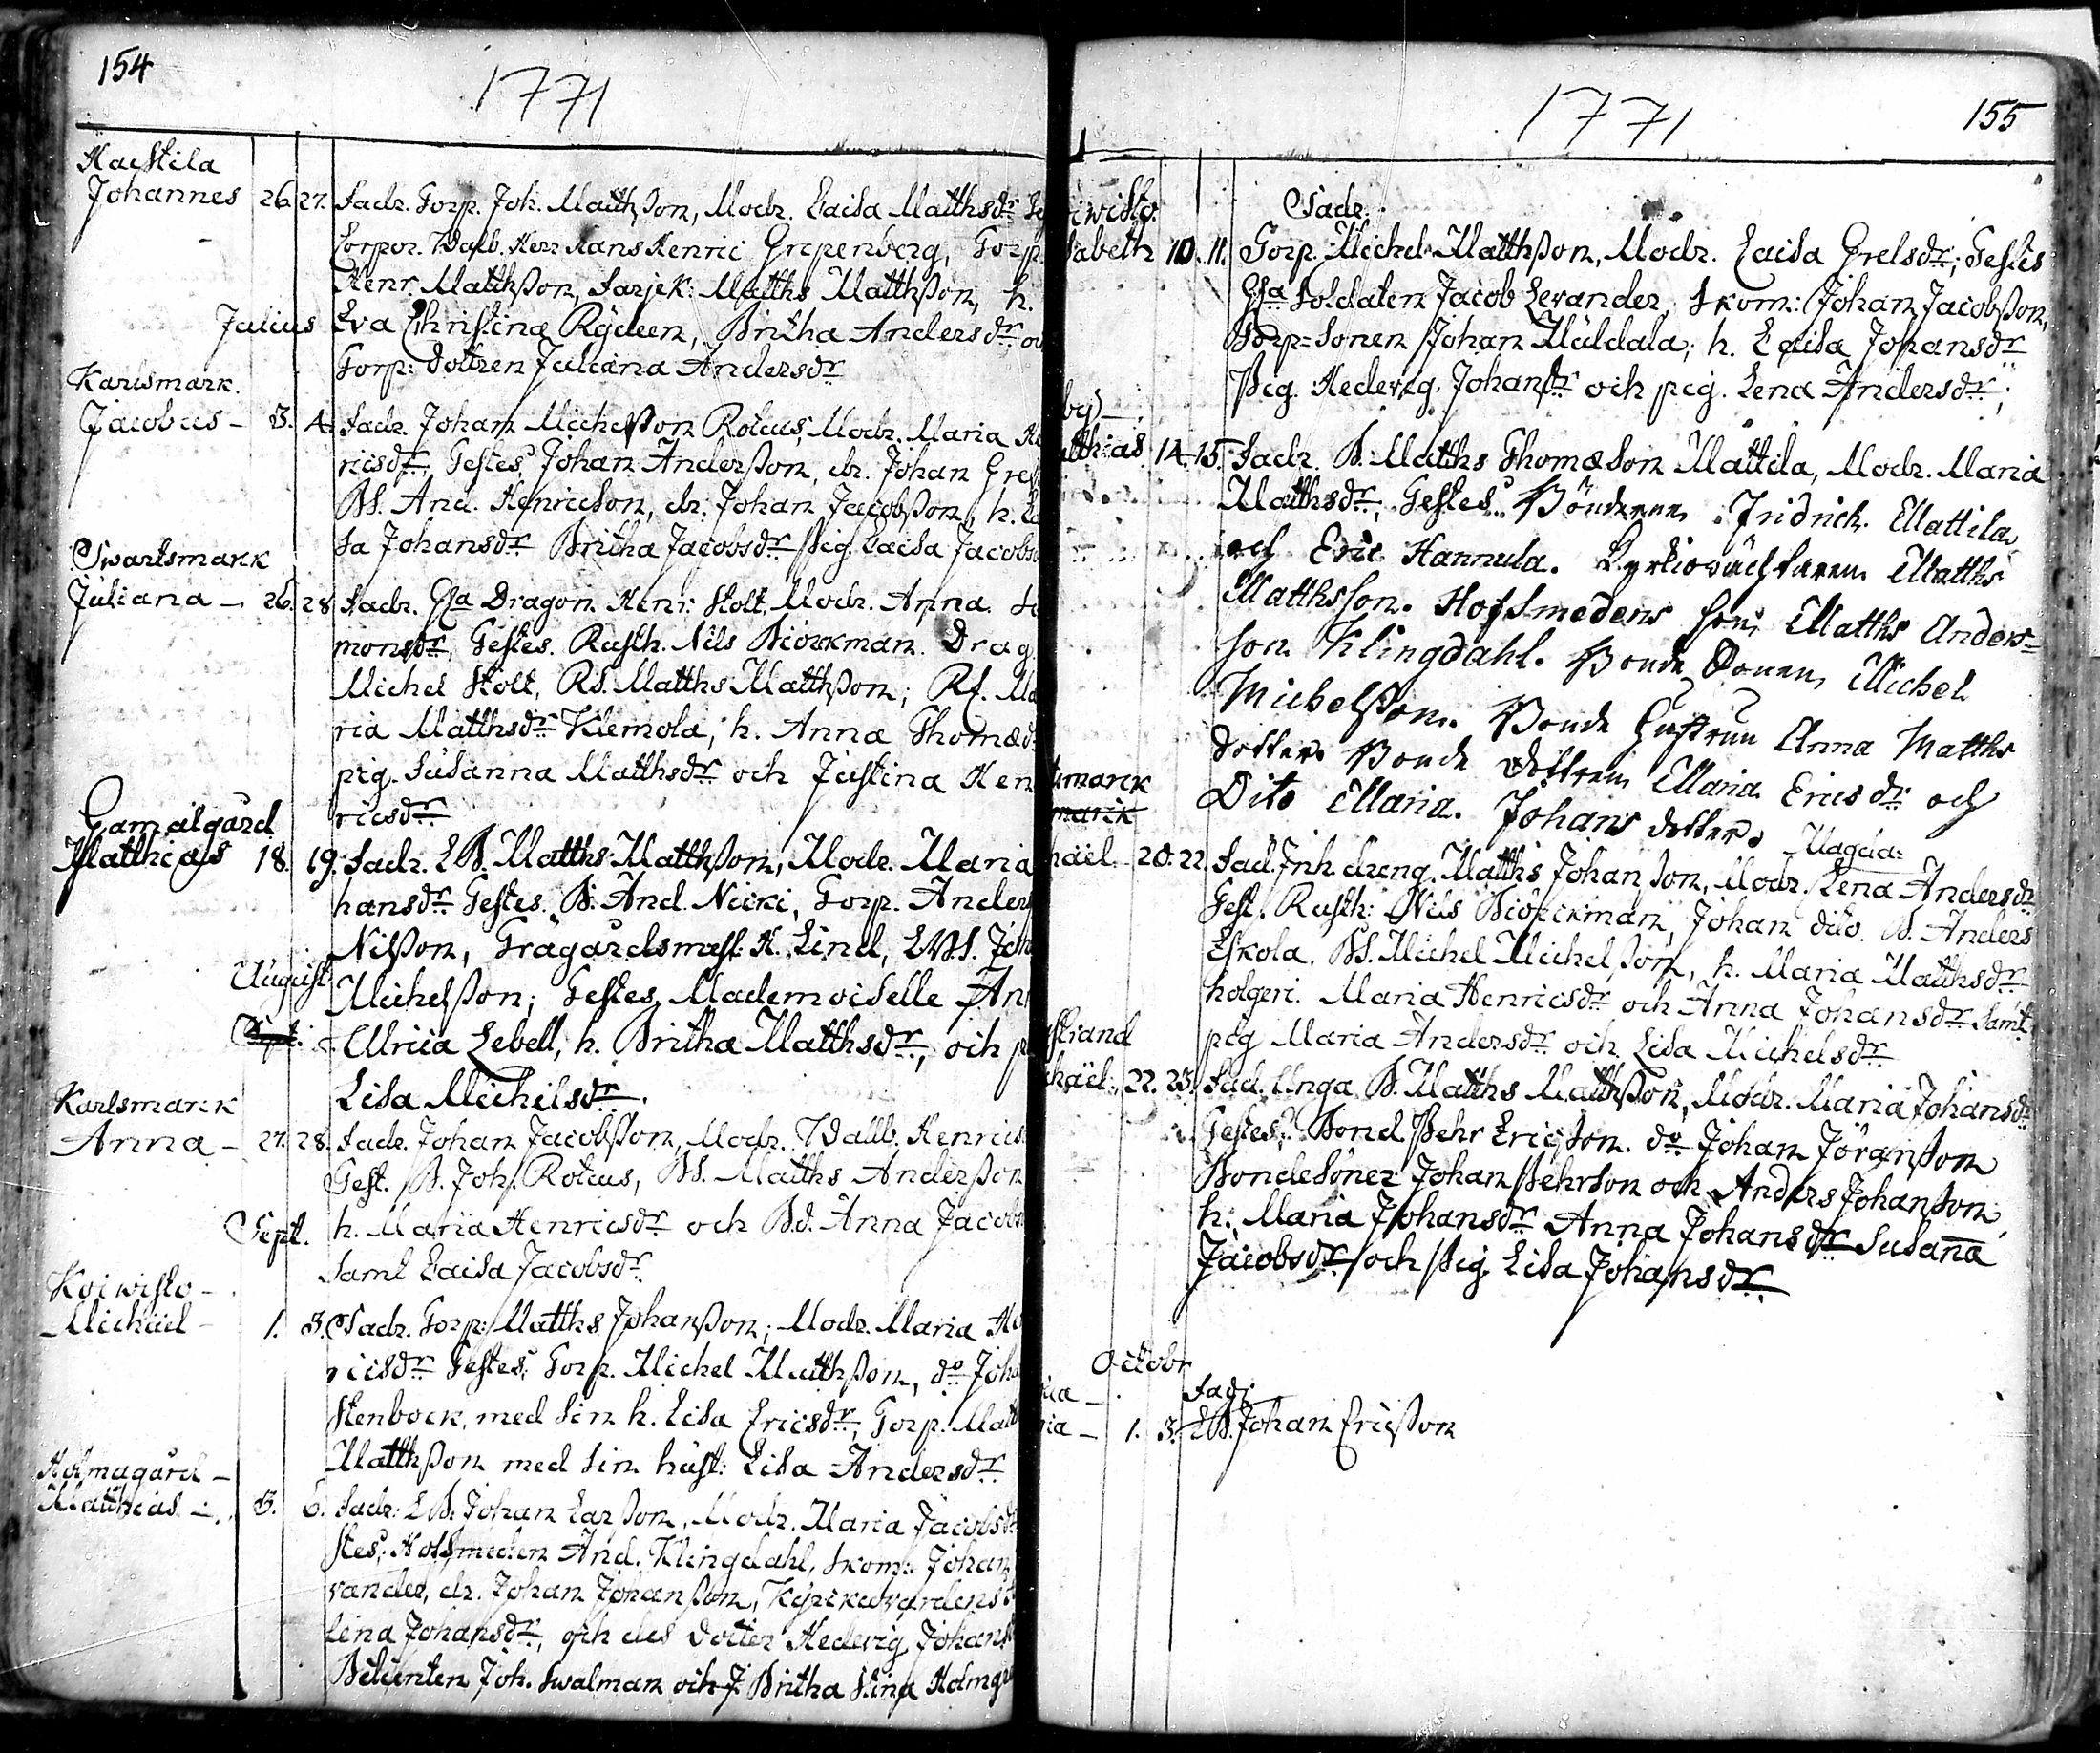 154
1771
Kaustila
Johannes 26. 27. Fadr. Torp. Joh. Matthsson, Modr. Caisa Matthsdr
Corpor. Wälb. Herr Hans Henric Gripenberg, Torp.
Henr. Matthsson, Matths Matthsson, h.
Julius Eva Christina Rydeen, Britha Andersdr
Torp: dottren Juliana Andersdr
Karlsmark.
Jacobus - 3. 4. Fadr. Johan Michelsson Roteus, Modr. Maria
ricsdr, Testes, Johan Andersson, dr. Johan
BS. And. Henricson, dr. Johan Jacobsson, h.
sa Johansdr Britha Jacobsdr Pig. Caisa
Swartsmark
Juliana - 26. 28. Fadr. Gla Dragon Henr. Stolt, Modr. Anna
monsdr, Testes. Rusth. Nils Biörkman. Drag.
Michel Stolt, RS. Matths Matthsson; Rf.
ria Matthsdr Klemola, h. Anna
pig. Susanna Matthsdr och Justina Hen
ricsdr
Gamalgård
Matthias 18. 19. Fadr. LB. Matths Matthsson, Modr. Maria
hansdr Testes. B. And. Nicki, Torp.
Nilsson, Trägårdsmest. H. Lind,
August Michelsson; Testes, Mademoiselle
Sept. Ulrica Lebell, h. Britha Matthsdr, och
Lisa Michelsdr.
Karlsmark
Anna - 27. 28. Fadr. Johan Jacobsson, Modr. Wallb. Henrics
Test. B. Joh. Roteus, BS. Matths Andersson
h. Maria Henricsdr och Bd. Anna
Sept.
samt Caisa Jacobsdr
Koiwisto -
Michaël - 1. 3. Fadr. Torp. Matths Johansson; Modr. Maria
ricsdr Testes: Torp. Michel Matthsson, do
Stenbock, med sin h. Lisa Ericsdr, Torp.
Matthsson med sin hust: Lisa Andersdr
Holmagård -
Matthias - 5. 6. Fadr: LB. Johan Larsson, Modr. Maria Jacobsdr
stes, Hofsmeden And. Klingdahl, skom: Johan
vander, dr. Johan Johansson,
lena Johansdr, och des dotter Hedevig
Joh. Swalman och J. Britha Stina
1771
155
Fadr.
10. 11. Torp. Michel Matthsson, Modr. Caisa Grelsdr; Testes
Gla Soldaten Jacob Levander, Skom: Johan Jacobsson,
Torp=Sonen Johan Kuldala; h. Caisa Johansdr
Pig. Hedevig Johansdr och pig. Lena Andersdr;
14. 15. Fadr. B. Matths Thomæson Mattila, Modr. Maria
Matthsdr, Testes. Bönderne Fridrich Mattila
och Eric Hannula. Kyrkioväcktaren Matths
Matthsson. Hofsmedens son Matths Anders=
son Klingdahl. Bonde Sonen Michel
Michelsson. Bonde Hustrun Anna Matths
dotter. Bonde dottren Maria Ericsdr och
Dito Maria Johans dotter.
Magda:
20. 22. Fad. Inh. dreng. Matths Johansson, Modr. Lena Andersdr
Test. Rusth: Nils Biörckman, Johan dito. B. Anders
Eskola. BS. Michel Michelsson, h. Maria Matthsdr
holgeri. Maria Henricsdr och Anna Johansdr samt
pig Maria Andersdr och Lisa Michelsdr
22. 23. Fad. Unga B. Matths Matthsson, Modr. Maria Johansdr
Testes: Bond Pehr Ericsson. do Johan Jöransson
Bondesöner Johan Pehrson och Anders Johansson
h. Maria Johansdr Anna Johansdr Susana
Jacobsdr och Pig. Lisa Johansdr
Octobr
Fadr
1. 3. LB. Johan Ericsson